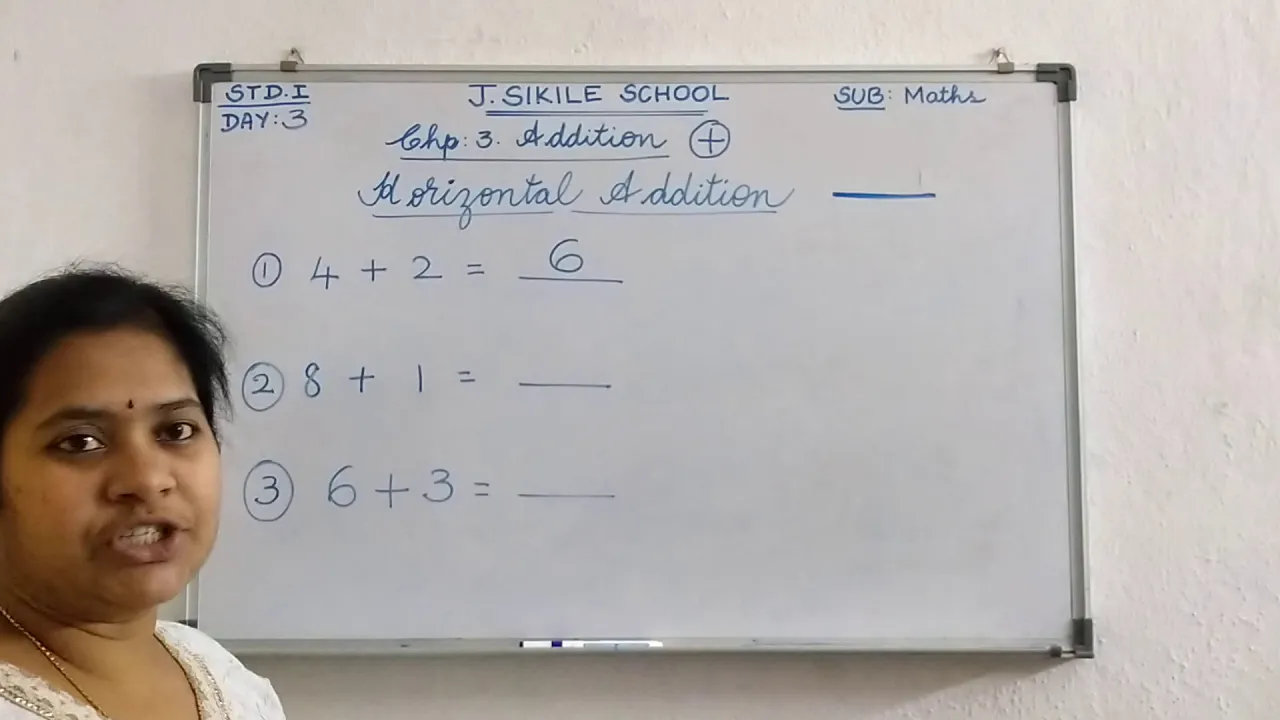 STD.I J. SIKILE SCHOOL SUB: Maths
DAY: 3
Chp: 3. Addition +
Horizontal Addition
① 4 + 2 = 6
② 8 + 1 = ___
③ 6 + 3 = ___